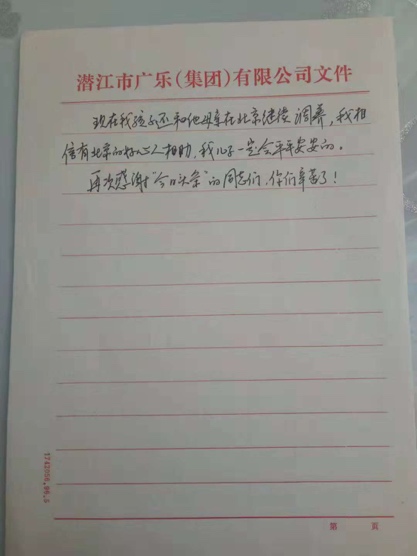 潜江市广乐(集团)有限公司文件
现在我孩子还和他母亲在北京继续调养，我相
信有北京的好心人相助，我儿子一定会平平安安的。
再次感谢"今日头条"的同志们，你们辛苦了！
1742056.99.5
第 页